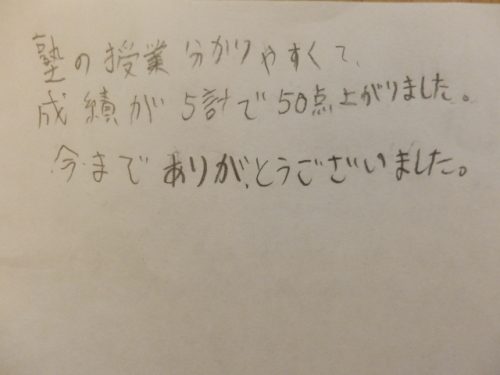 塾の授業分かりやすくて、
成績が5計で50点上がりました。
今まで ありがとうございました。